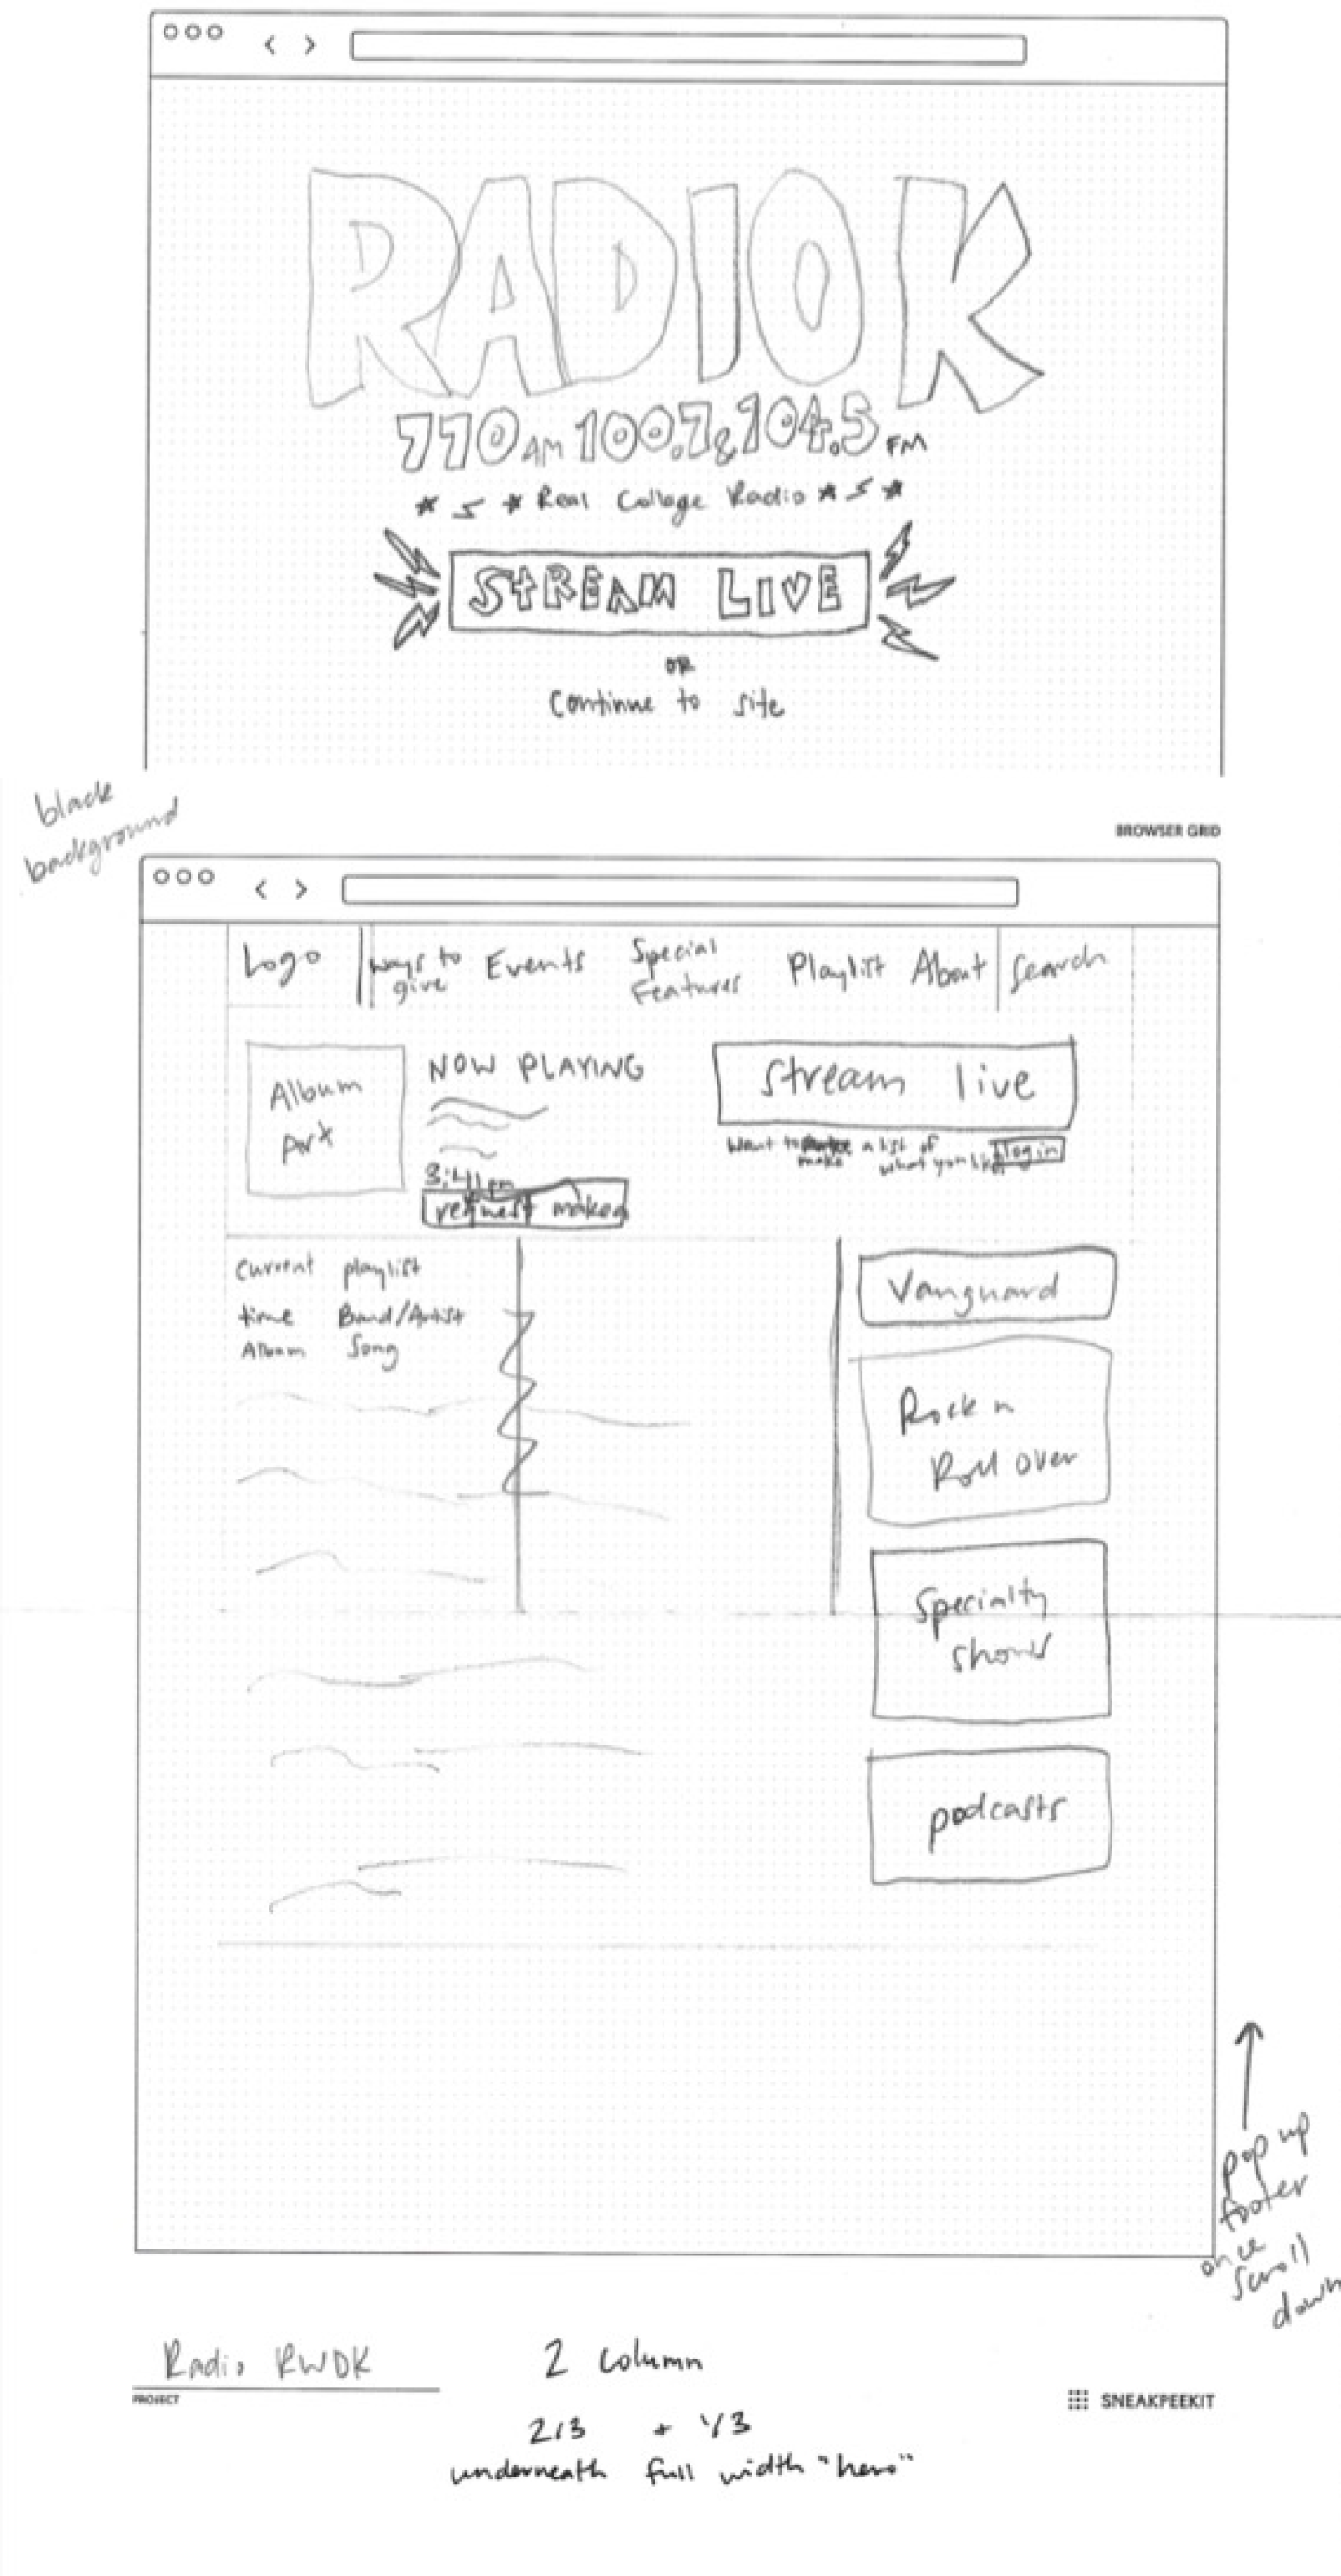 RADIO K
770 AM 100.7 & 104.5 FM
Real College Radio
STREAM LIVE
OR
Continue to site
black
background
BROWSER GRID
Logo
ways to give
Events
Special Features
Playlist
About
Search
Album Art
NOW PLAYING
3:41 pm
request
stream live
Want to make a list of what you like
login
Current playlist
time Band/Artist
Album Song
Vanguard
Rock n
Roll over
Specialty
shows
podcasts
pop up
footer
once
scroll
down
Radio RWDK
PROJECT
2 column
SNEAKPEEKIT
2/3 + 1/3
underneath full width "hero"